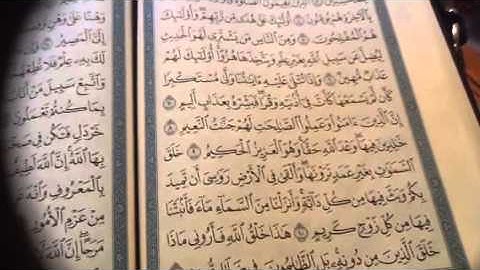 بِٱلْأَخِرَةِ هُمْ يُوقِنُونَ ٤ أُوْلَٰٓئِكَ عَلَىٰ هُدًى مِّن رَّبِّهِمْ وَأُوْلَٰٓئِكَ
هُمُ ٱلْمُفْلِحُونَ ٥ وَمِنَ ٱلنَّاسِ مَن يَشْتَرِى لَهْوَ ٱلْحَدِيثِ
لِيُضِلَّ عَن سَبِيلِ ٱللَّهِ بِغَيْرِ عِلْمٍ وَيَتَّخِذَهَا هُزُوًا أُوْلَٰٓئِكَ لَهُمْ
عَذَابٌ مُّهِينٌ ٦ وَإِذَا تُتْلَىٰ عَلَيْهِ ءَايَٰتُنَا وَلَّىٰ مُسْتَكْبِرًا
كَأَن لَّمْ يَسْمَعْهَا كَأَنَّ فِىٓ أُذُنَيْهِ وَقْرًا فَبَشِّرْهُ بِعَذَابٍ أَلِيمٍ ٧
إِنَّ ٱلَّذِينَ ءَامَنُواْ وَعَمِلُواْ ٱلصَّٰلِحَٰتِ لَهُمْ جَنَّٰتُ ٱلنَّعِيمِ ٨
خَٰلِدِينَ فِيهَا وَعْدَ ٱللَّهِ حَقًّا وَهُوَ ٱلْعَزِيزُ ٱلْحَكِيمُ ٩ خَلَقَ
ٱلسَّمَٰوَٰتِ بِغَيْرِ عَمَدٍ تَرَوْنَهَا وَأَلْقَىٰ فِى ٱلْأَرْضِ رَوَٰسِىَ أَن تَمِيدَ
بِكُمْ وَبَثَّ فِيهَا مِن كُلِّ دَآبَّةٍ وَأَنزَلْنَا مِنَ ٱلسَّمَآءِ مَآءً فَأَنۢبَتْنَا
فِيهَا مِن كُلِّ زَوْجٍ كَرِيمٍ ١٠ هَٰذَا خَلْقُ ٱللَّهِ فَأَرُونِى مَاذَا
خَلَقَ ٱلَّذِينَ مِن دُونِهِۦ بَلِ ٱلظَّٰلِمُونَ فِى
وَهْنًا عَلَىٰ وَهْنٍ
إِلَىَّ ٱلْمَصِيرُ
لَكَ بِهِۦ عِلْمٌ فَلَا تُطِعْهُمَا
وَٱتَّبِعْ سَبِيلَ مَنْ أَنَابَ
بِمَا كُنتُمْ تَعْمَلُونَ
خَرْدَلٍ فَتَكُن فِى
بِهَا ٱللَّهُ إِنَّ ٱللَّهَ لَطِيفٌ
بِٱلْمَعْرُوفِ وَٱنْهَ عَنِ
مِنْ عَزْمِ ٱلْأُمُورِ
مَرَحًا إِنَّ ٱللَّهَ